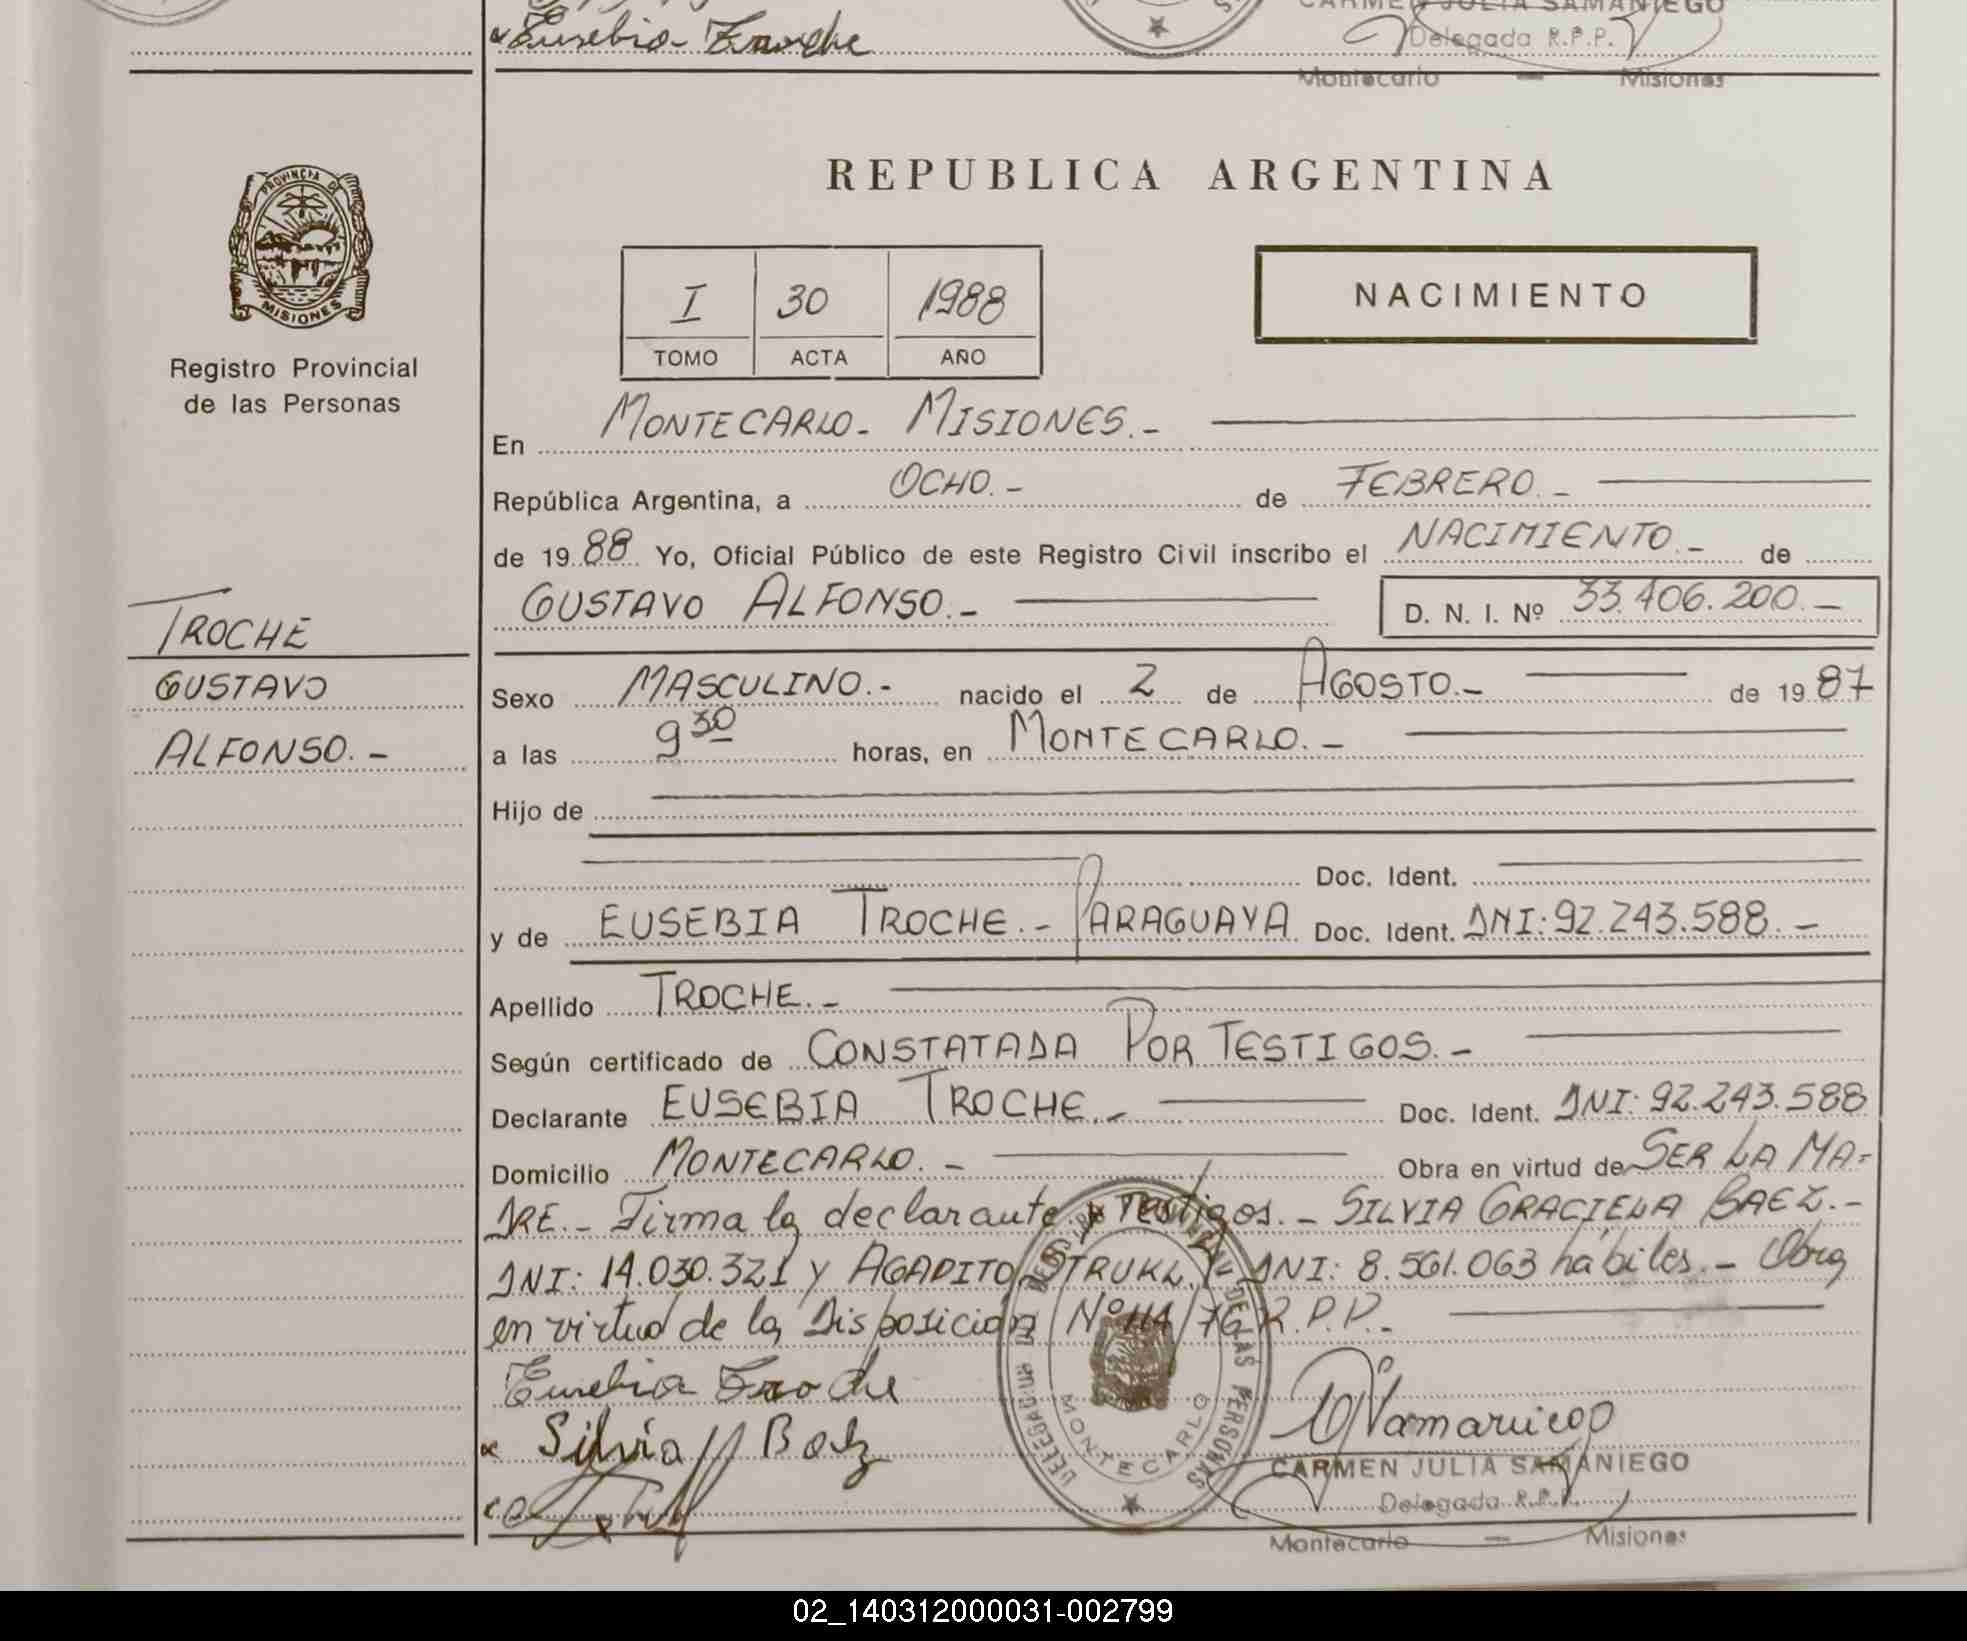 Eusebia Troche
CARMEN JULIA SAMANIEGO
Delegada R.P.P.
Montecarlo — Misiones
PROVINCIA DE
MISIONES
Registro Provincial
de las Personas
TROCHE
GUSTAVO
ALFONSO.-
REPUBLICA ARGENTINA
I 30 1988
TOMO ACTA AÑO
NACIMIENTO
En MONTECARLO- MISIONES.-
República Argentina, a OCHO.- de FEBRERO.-
de 1988 Yo, Oficial Público de este Registro Civil inscribo el NACIMIENTO.- de
GUSTAVO ALFONSO.- D. N. I. Nº 33.406.200.-
Sexo MASCULINO.- nacido el 2 de AGOSTO.- de 1987
a las 9 30 horas, en MONTECARLO.-
Hijo de
Doc. Ident.
y de EUSEBIA TROCHE.- PARAGUAYA Doc. Ident. DNI: 92.243.588.-
Apellido TROCHE.-
Según certificado de CONSTATADA POR TESTIGOS.-
Declarante EUSEBIA TROCHE.- Doc. Ident. DNI: 92.243.588
Domicilio MONTECARLO.- Obra en virtud de SER LA MA=
DRE.- Firma la declarante y Testigos.- SILVIA GRACIELA BAEZ.-
DNI: 14.030.321 y AGAPITO STRUKL.- DNI: 8.561.063 hábiles.- Obra
en virtud de la Disposición Nº 114/76 R.P.P.-
Eusebia Troche
Silvia Baez
MONTECARLO
CARMEN JULIA SAMANIEGO
Delegada R.P.P.
Montecarlo — Misiones
02_140312000031-002799